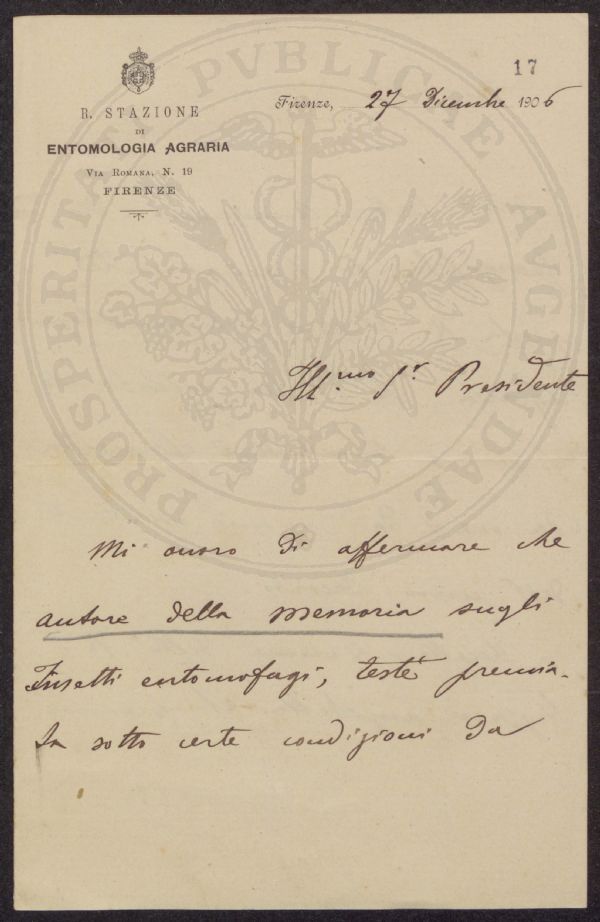 17
R. STAZIONE
DI
ENTOMOLOGIA AGRARIA
VIA ROMANA, N. 19
FIRENZE
Firenze, 27 Dicembre 1906
Ill.mo Sr. Presidente
Mi onoro di affermare che
autore della memoria sugli
Insetti entomofagi, testè premia-
ta sotto certe condizioni da
PROSPERITATI PVBLICAE AVGENDAE